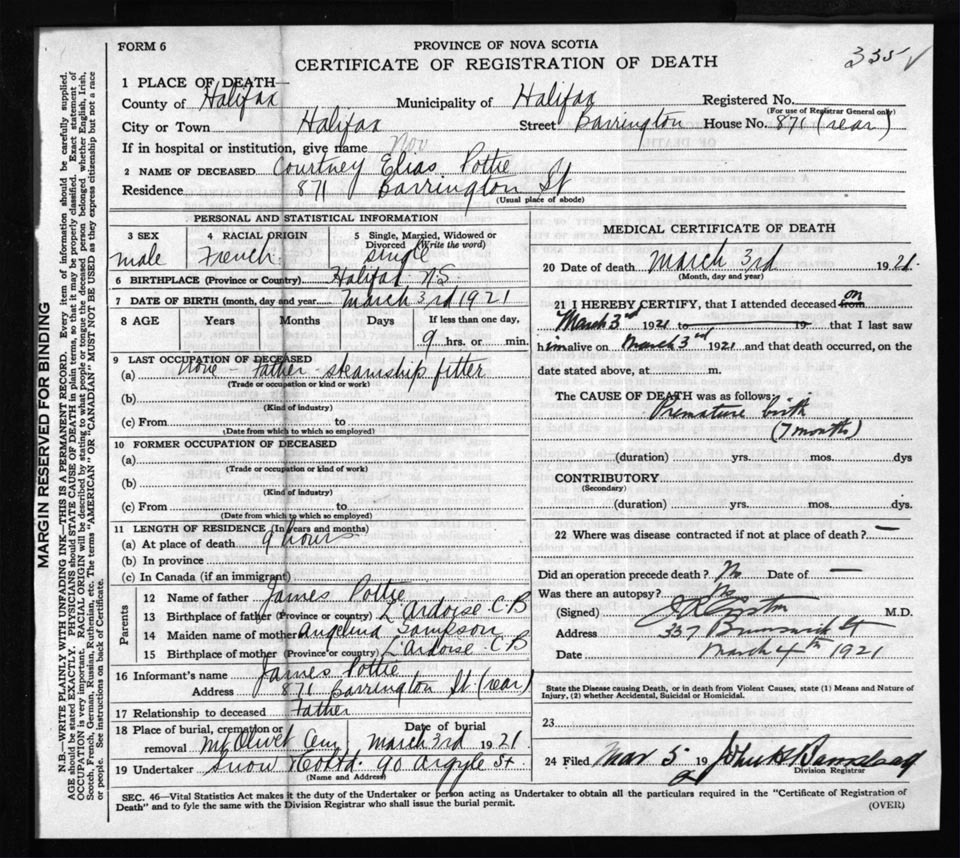 FORM 6
PROVINCE OF NOVA SCOTIA
CERTIFICATE OF REGISTRATION OF DEATH
335 ✓
1 PLACE OF DEATH—
County of Halifax Municipality of Halifax Registered No.
(For use of Registrar General only)
City or Town Halifax Street Barrington House No. 871 (rear)
If in hospital or institution, give name Nov
2 NAME OF DECEASED Courtney Elias Pottie
Residence 871 Barrington St
(Usual place of abode)
PERSONAL AND STATISTICAL INFORMATION
3 SEX male
4 RACIAL ORIGIN French
5 Single, Married, Widowed or Divorced (Write the word) single
6 BIRTHPLACE (Province or Country) Halifax N.S
7 DATE OF BIRTH (month, day and year) March 3rd 1921
8 AGE Years Months Days If less than one day,
9 hrs. or min.
9 LAST OCCUPATION OF DECEASED
(a) None - Father - steamship fitter
(Trade or occupation or kind or work)
(b)
(Kind of industry)
(c) From to
(Date from which to which so employed)
10 FORMER OCCUPATION OF DECEASED
(a)
(Trade or occupation or kind of work)
(b)
(Kind of industry)
(c) From to
(Date from which to which so employed)
11 LENGTH OF RESIDENCE (In years and months)
(a) At place of death 9 hours
(b) In province
(c) In Canada (if an immigrant)
Parents
12 Name of father James Pottie
13 Birthplace of father (Province or country) L'Ardoise C-B
14 Maiden name of mother Angelina Sampson
15 Birthplace of mother (Province or country) L'Ardoise C-B
16 Informant's name James Pottie
Address 871 Barrington St (rear)
17 Relationship to deceased Father
18 Place of burial, cremation or removal Mt Olivet Cem Date of burial March 3rd 1921
19 Undertaker Snow & Co Ltd. 90 Argyle St.
(Name and Address)
MEDICAL CERTIFICATE OF DEATH
20 Date of death March 3rd 1921
(Month, day and year)
21 I HEREBY CERTIFY, that I attended deceased from on
March 3rd 1921 to 19 that I last saw
him alive on March 3rd 1921 and that death occurred, on the
date stated above, at m.
The CAUSE OF DEATH was as follows:
Premature birth
(7 months)
(duration) yrs. mos. dys
CONTRIBUTORY
(Secondary)
(duration) yrs. mos. dys.
22 Where was disease contracted if not at place of death? —
Did an operation precede death? No Date of —
Was there an autopsy? No
(Signed) M.D.
Address 337 Brunswick St
Date March 4th 1921
State the Disease causing Death, or in death from Violent Causes, state (1) Means and Nature of
Injury, (2) whether Accidental, Suicidal or Homicidal.
23
24 Filed Mar 5 19
Division Registrar
SEC. 46—Vital Statistics Act makes it the duty of the Undertaker or person acting as Undertaker to obtain all the particulars required in the "Certificate of Registration of
Death" and to fyle the same with the Division Registrar who shall issue the burial permit.
(OVER)
MARGIN RESERVED FOR BINDING
N.B.—WRITE PLAINLY WITH UNFADING INK—THIS IS A PERMANENT RECORD. Every item of information should be carefully supplied.
AGE should be stated EXACTLY. PHYSICIANS should STATE CAUSE OF DEATH in plain terms, so that it may be properly classified. Exact statement of
OCCUPATION is very important. RACIAL ORIGIN will be described by stating to what people or tongue the deceased person belonged, whether English, Irish,
Scotch, French, German, Russian, Ruthenian, etc. The terms "AMERICAN" OR "CANADIAN" MUST NOT BE USED as they express citizenship but not a race
or people. See instructions on back of Certificate.